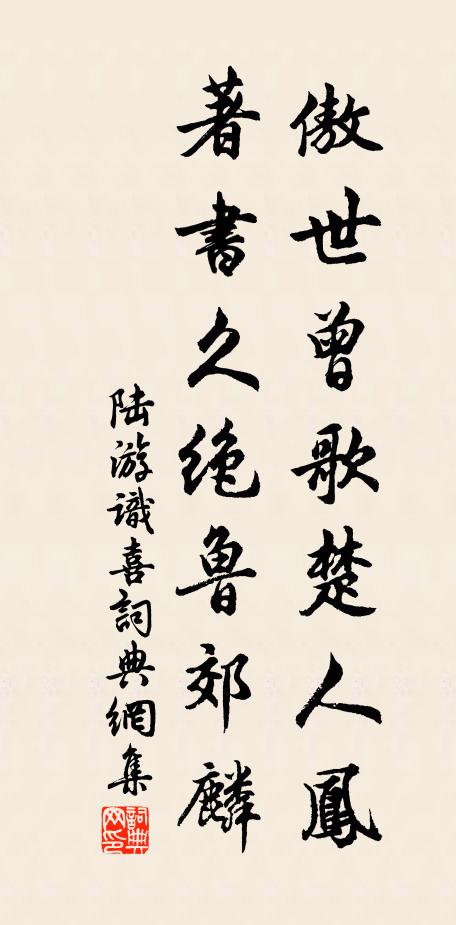 傲世曾歌楚人鳳
著書久絶魯郊麟
陆游識喜詞典網集
詞典網印